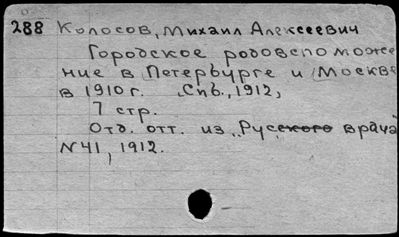 288 Колосов, Михаил Алексеевич
Городское родовспоможе
ние в Петербурге и Москве
в 1910 г. Спб., 1912,
7 стр.
Отд. отт. из „Русского врача"
N 41, 1912.